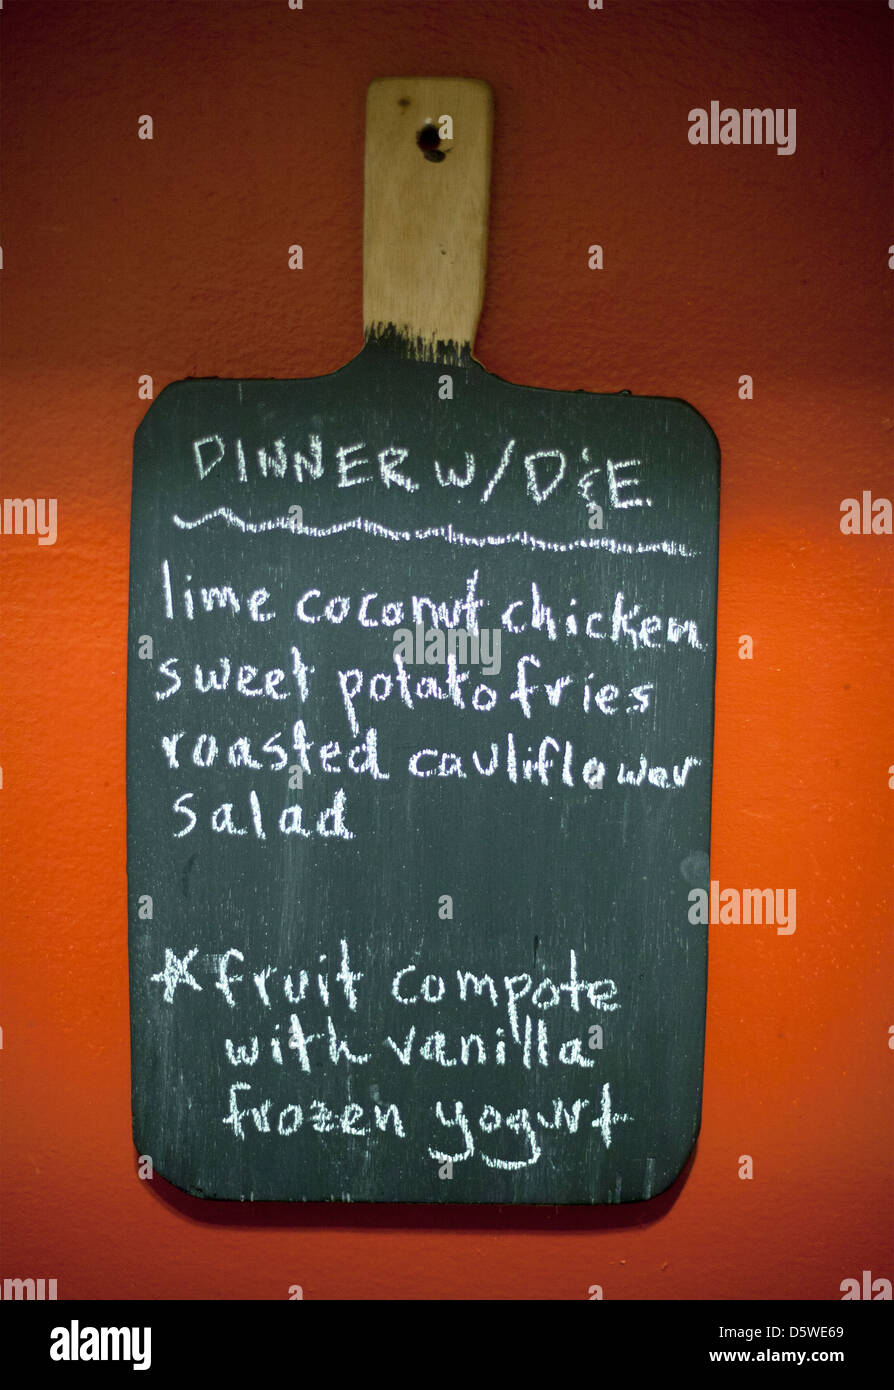 DINNER W/ D&E
lime coconut chicken
sweet potato fries
roasted cauliflower
salad
*fruit compote
with vanilla
frozen yogurt
alamy
Image ID: D5WE69
www.alamy.com